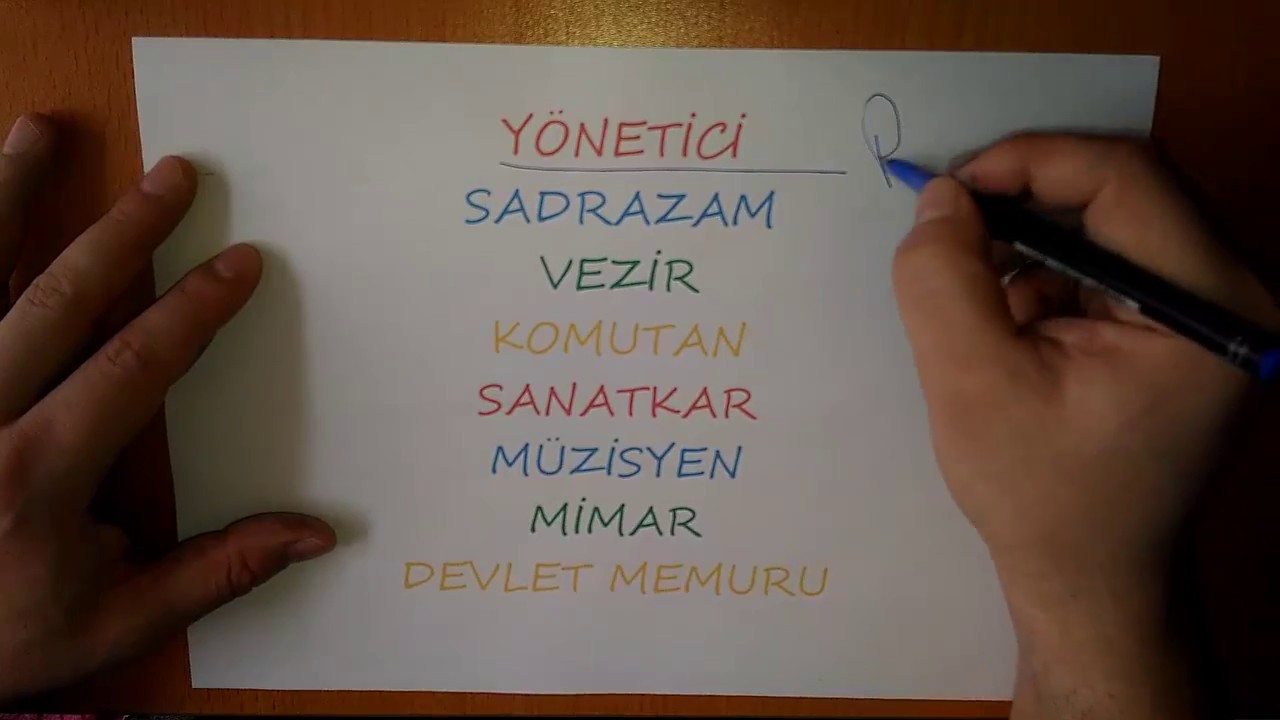 YÖNETİCİ
SADRAZAM
VEZİR
KOMUTAN
SANATKAR
MÜZİSYEN
MİMAR
DEVLET MEMURU